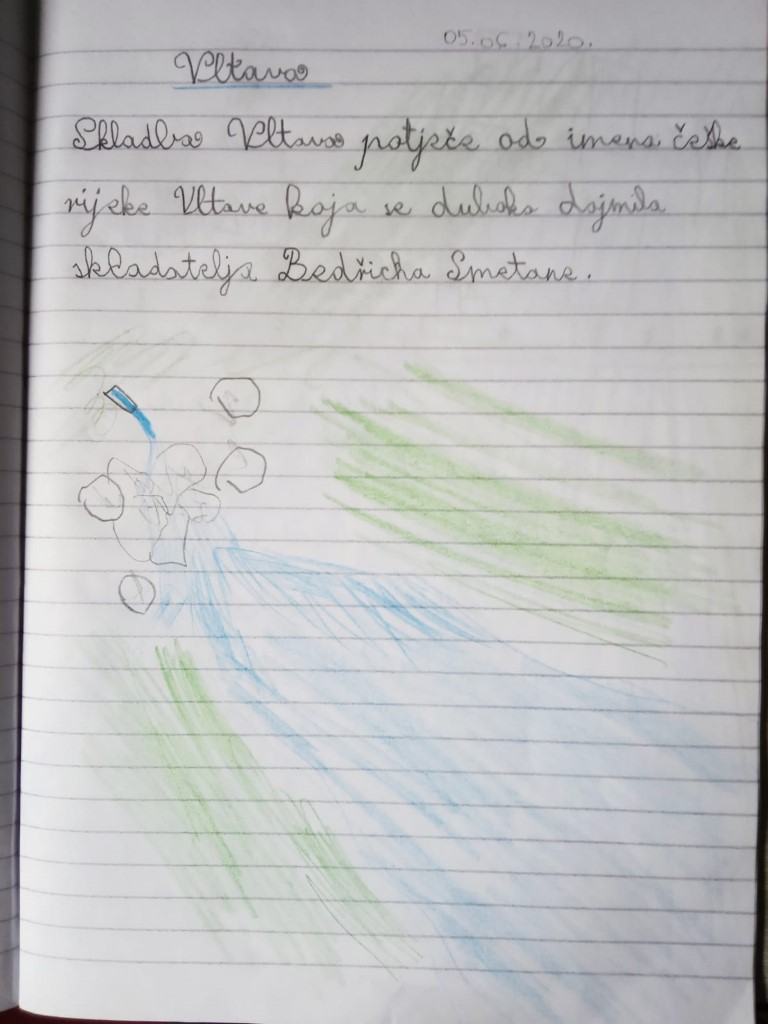 05.06.2020.
Vltava
Skladba Vltava potječe od imena češke
rijeke Vltave koja se duboko dojmila
skladatelja Bedřicha Smetane.